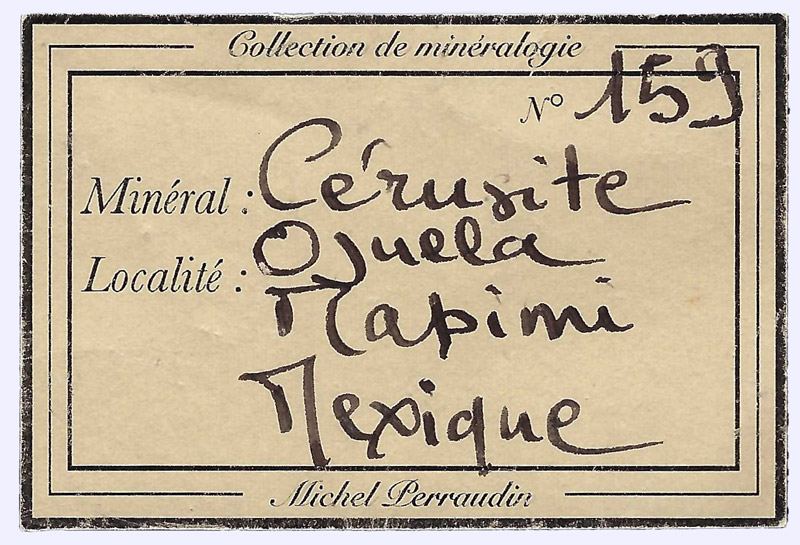 Collection de minéralogie
N° 159
Minéral : Cérusite
Localité : Ojuela
Mapimi
Mexique
Michel Perraudin